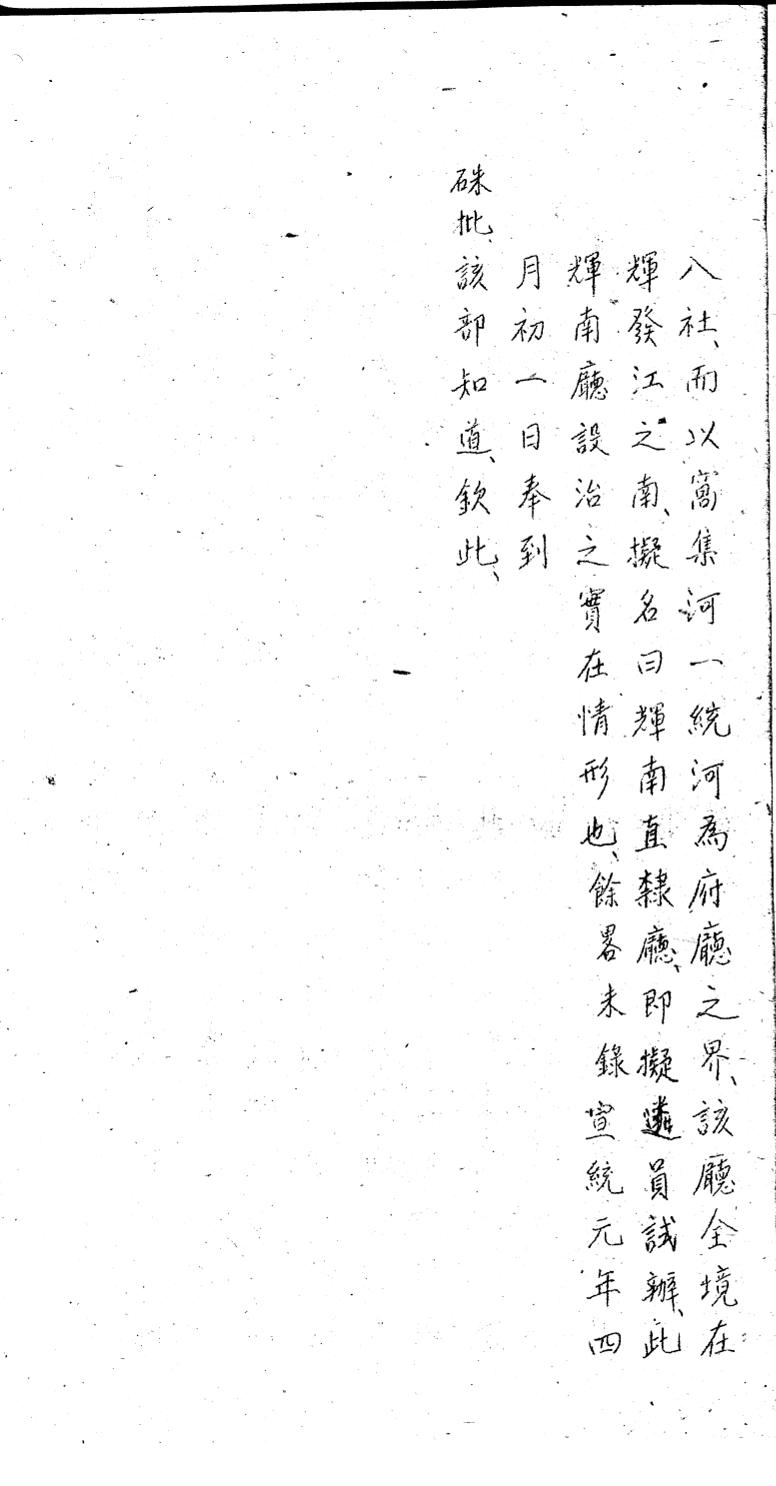 八社、而以窩集河一統河為府廳之界、該廳全境在
輝發江之南、擬名曰輝南直隸廳、即擬遴員試辦、此
輝南廳設治之實在情形也、餘畧未錄宣統元年四
月初一日奉到
硃批、該部知道、欽此、